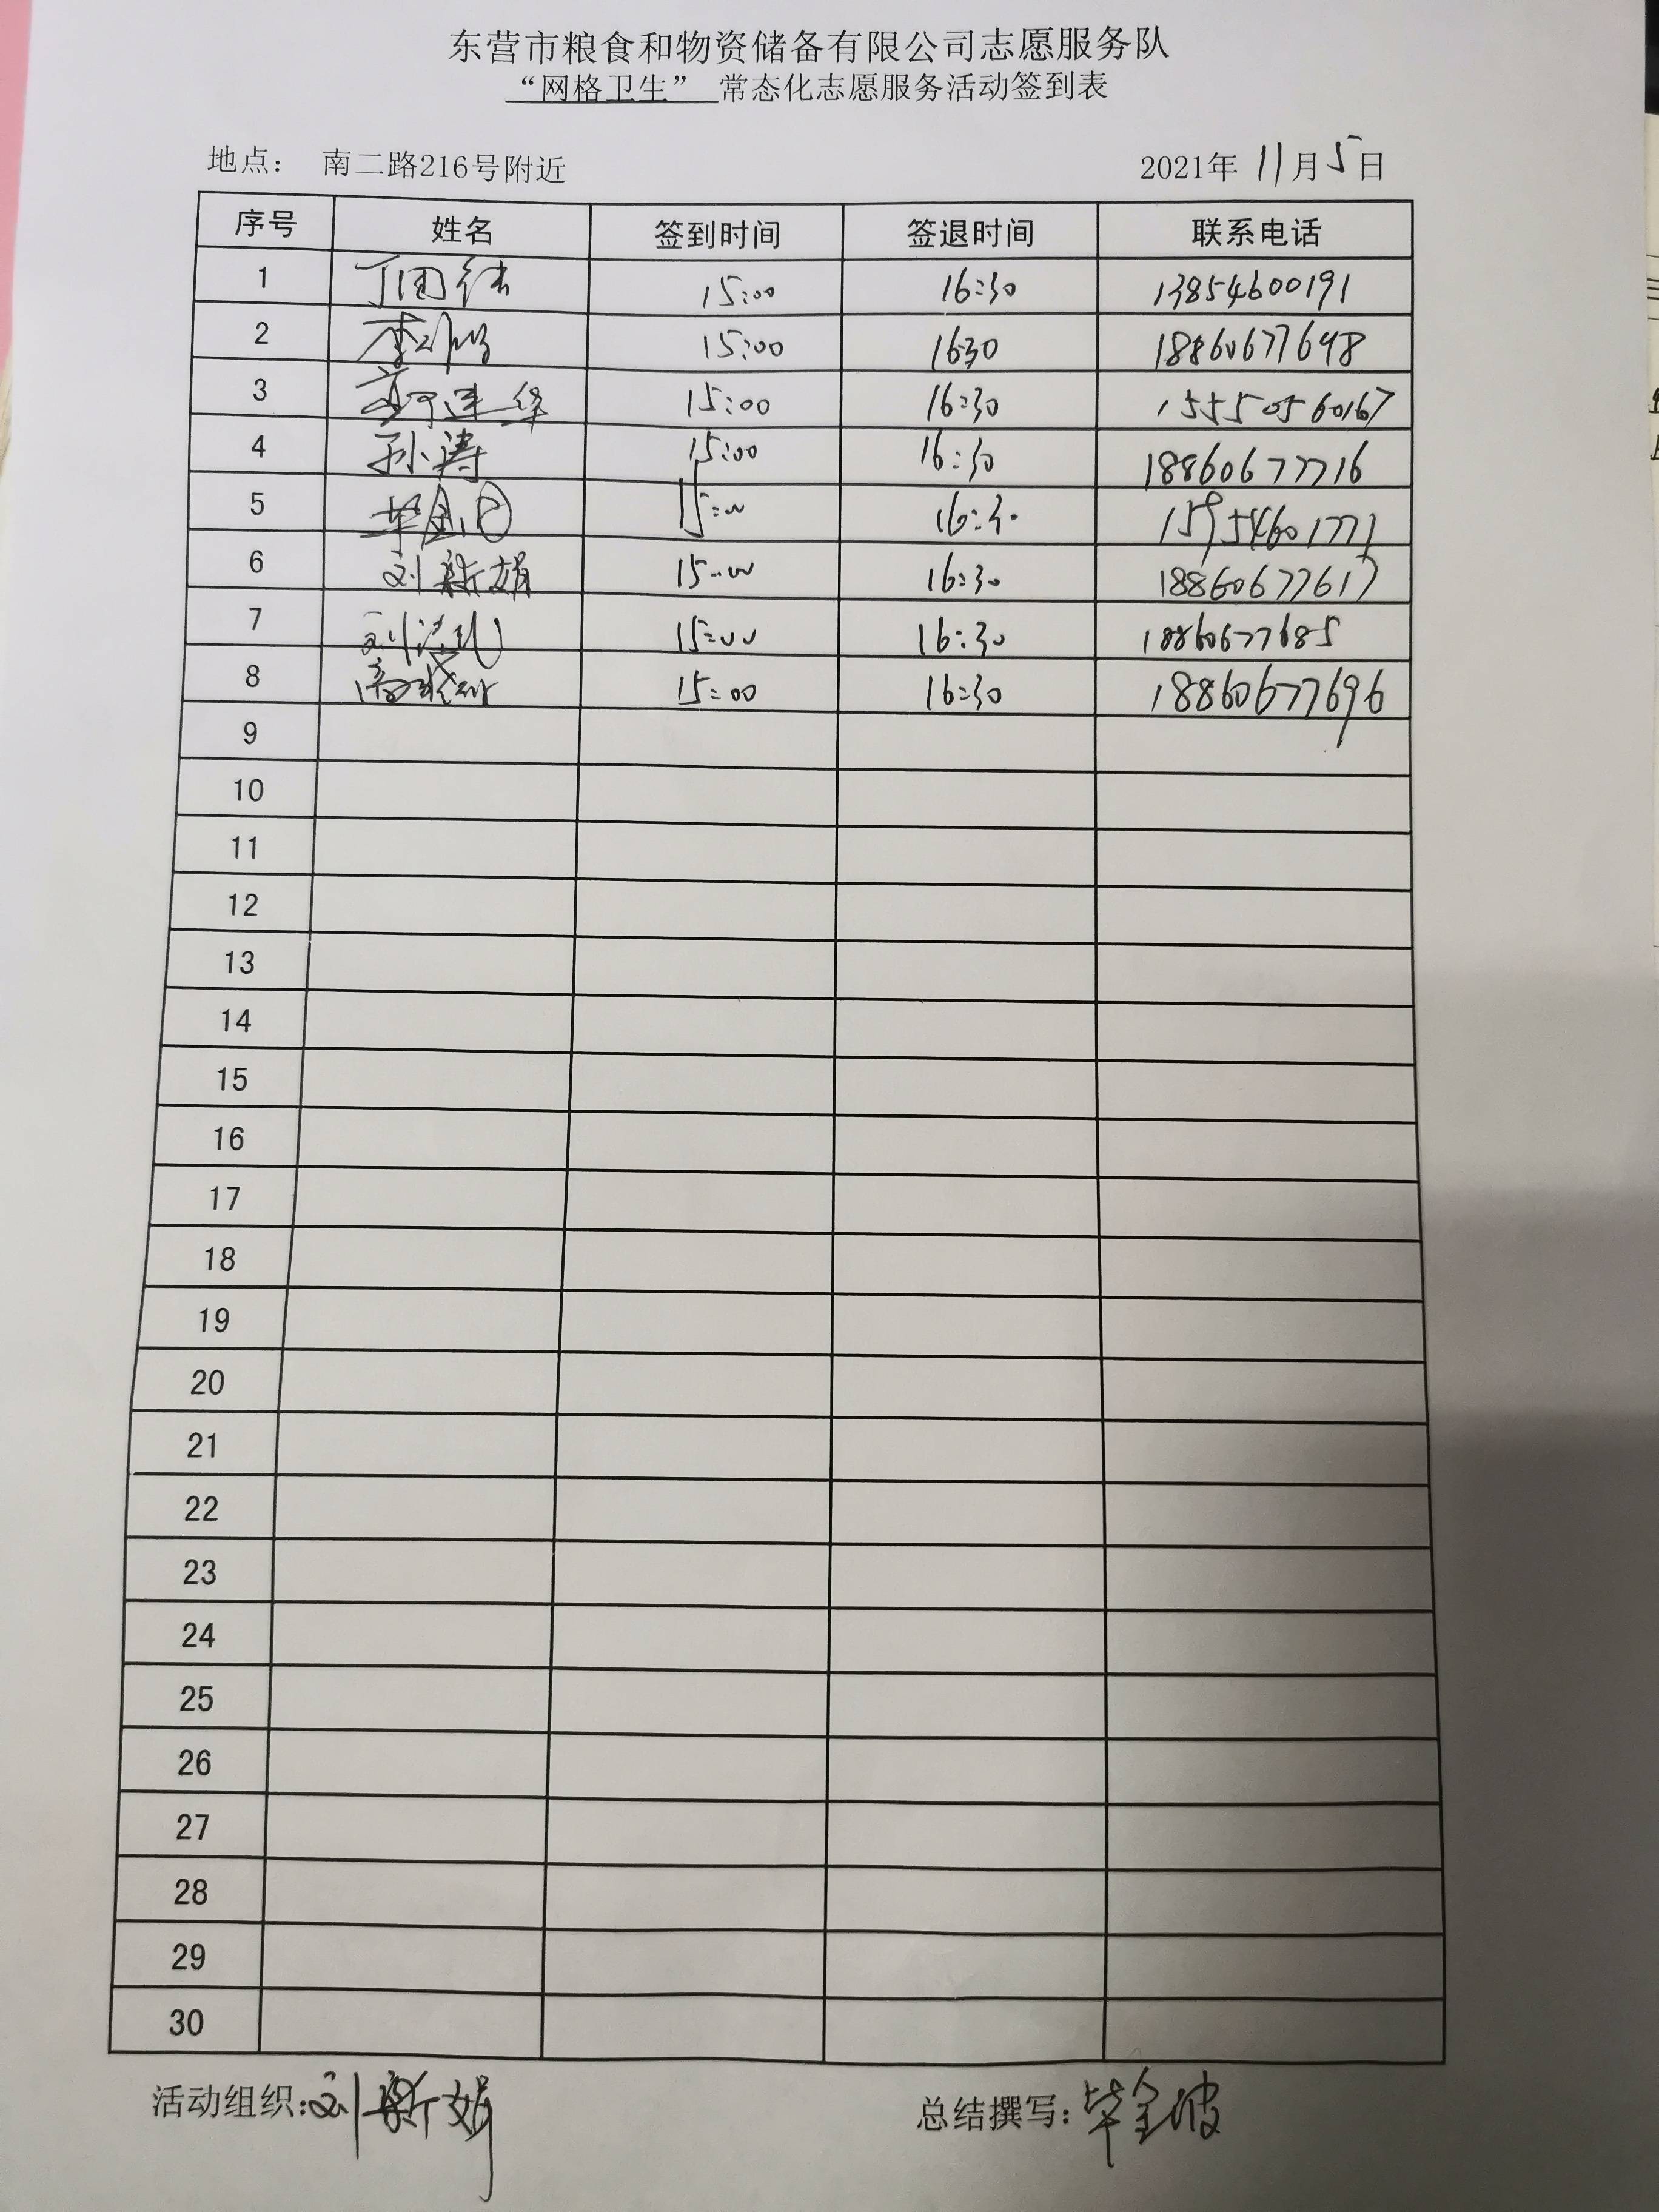 东营市粮食和物资储备有限公司志愿服务队
“网格卫生” 常态化志愿服务活动签到表
地点： 南二路216号附近 2021年 11月5日
序号 姓名 签到时间 签退时间 联系电话
1 丁国 15:00 16:30 13854600191
2 李 15:00 1630 18860677698
3 连华 15:00 16:30 15550560167
4 孙涛 15:00 16:30 18860677716
5 15:00 16:30 15954601771
6 刘新娟 15:00 16:30 18860677617
7 刘 15:00 16:30 18860677685
8 高 15:00 16:30 18860677696
9
10
11
12
13
14
15
16
17
18
19
20
21
22
23
24
25
26
27
28
29
30
活动组织：刘新娟 总结撰写：毕金波